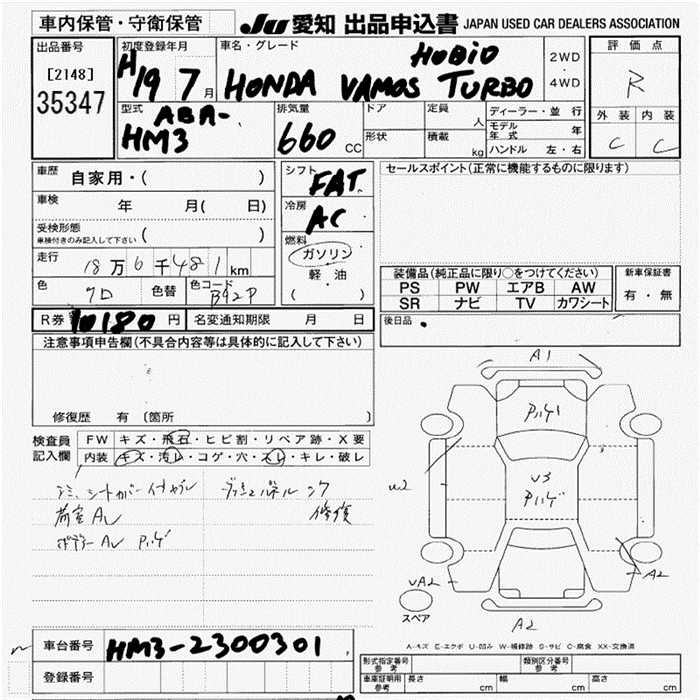 車内保管・守衛保管
JU 愛知 出品申込書 JAPAN USED CAR DEALERS ASSOCIATION
出品番号
[2148]
35347
初度登録年月
H19 7月
車名・グレード
HOBIO
HONDA VAMOS TURBO
2WD
・
4WD
評価点
R
外装 内装
C C
型式
ABA-
HM3
排気量
660 CC
ドア
形状
定員 人
積載 kg
ディーラー・並行
モデル年式 年
ハンドル 左・右
車歴 自家用・( )
車検 年 月( 日)
受検形態
車検付きのみ記入して下さい ( )
走行
18万6千481km
色 色替 色コード
B92P
シフト
FAT
冷房
AC
燃料
ガソリン
軽・油
( )
セールスポイント(正常に機能するものに限ります)
装備品(純正品に限り○をつけてください)
PS PW エアB AW
SR ナビ TV カワシート
新車保証書
有・無
後日品
R券 10180円 名変通知期限 月 日
注意事項申告欄(不具合内容等は具体的に記入して下さい)
修復歴 有 〔箇所
検査員
記入欄
FW キズ・飛石・ヒビ割・リペア跡・X要
内装 キズ・汚レ・コゲ・穴・スレ・キレ・破レ
荷室
修復
A1
U3
A2
UA2
A2
スペア
A-キズ E-エクボ U-凹み W-補修跡 S-サビ C-腐食 XX-交換済
車台番号 HM3-2300301
登録番号
形式指定番号 参考
類別区分番号 参考
車庫証明用 参考 長さ cm 幅 cm 高さ cm